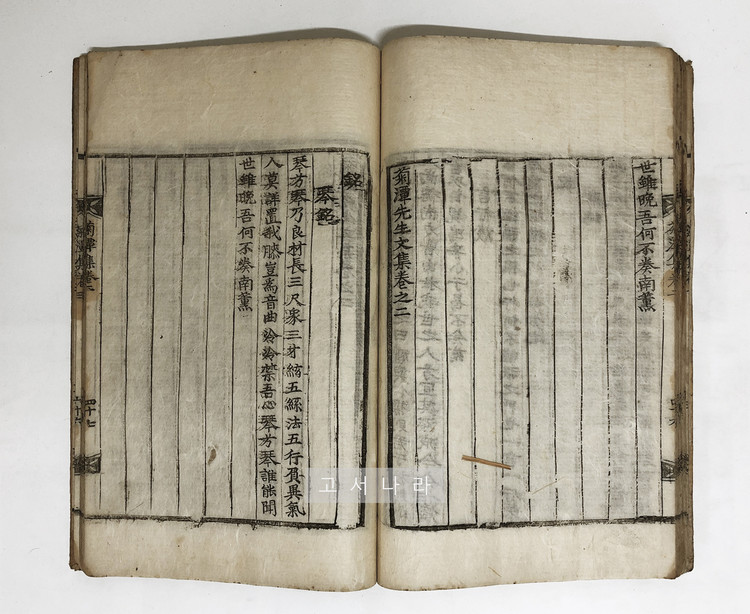 世雖晚吾何不奏南薰
菊潭先生文集卷之二
銘
琴銘
琴兮琴乃良材長三尺象三才絃五絲法五行負異氣
人莫詳置我膝豈爲音曲泠泠禁吾心琴兮琴誰能聞
世雖晚吾何不奏南薰
菊潭集卷二
四十七
고서나라